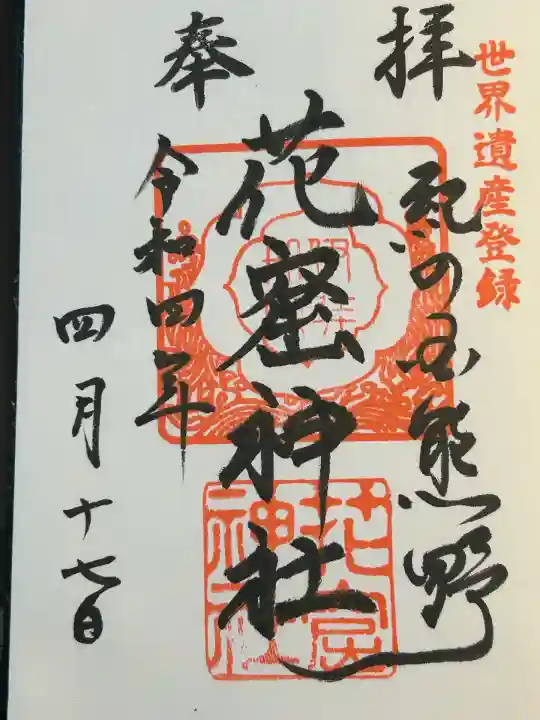 世界遺産登録
奉拝
紀の国熊野
花窟神社
令和四年
四月十七日
花窟神社